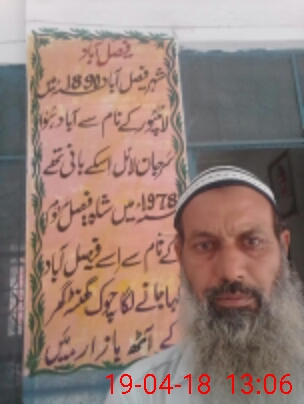 فیصل آباد
شہر فیصل آباد 1890ء میں
لائلپور کے نام سے آباد ہوا
سر جیمز لائل اسکے بانی تھے
1978ء میں شاہ فیصل
کے نام سے اسے فیصل آباد
کہا جانے لگا چوک گھنٹہ گھر
کے آٹھ بازار ہیں
19-04-18 13:06